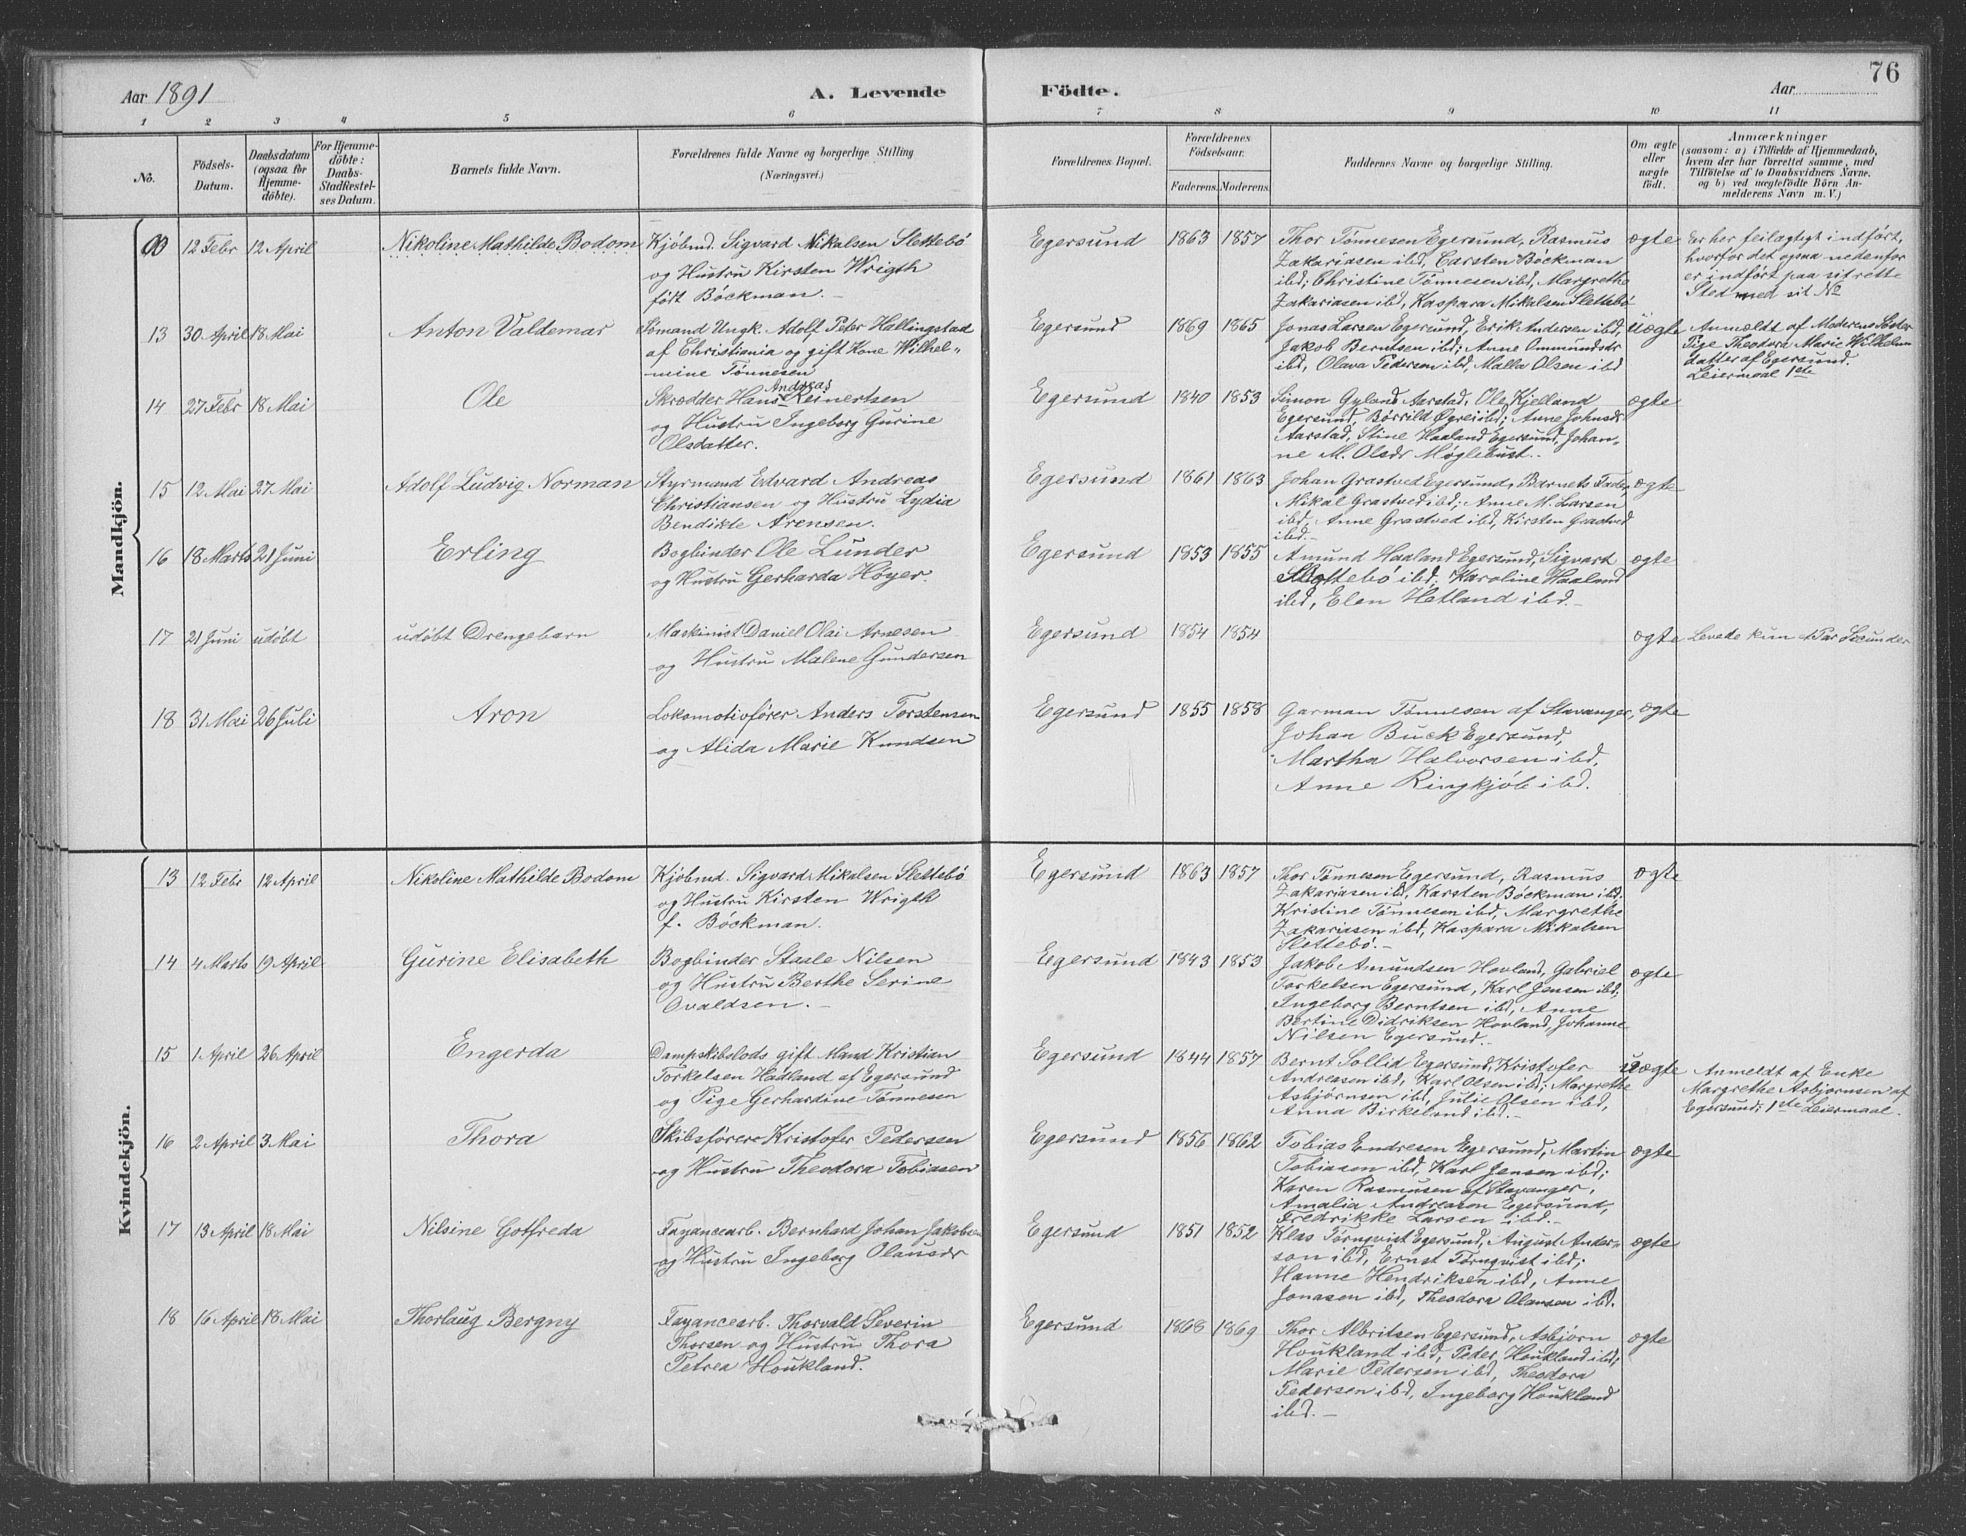 76
Aar 1891
A. Levende Födte.
Aar
1 2 3 4 5 6 7 8 9 10 11
No.
Födsels-Datum.
Daabsdatum (ogsaa for Hjemmedöbte).
For Hjemmedöbte: Daabs-Stadfæstelses Datum.
Barnets fulde Navn.
Forældrenes fulde Navne og borgerlige Stilling (Næringsvei.)
Forældrenes Bopæl.
Forældrenes Födselsaar.
Faderens. Moderens.
Faddernes Navne og borgerlige Stilling.
Om ægte eller uægte födt.
Anmærkninger
(saasom: a) i Tilfælde af Hjemmedaab,
hvem der har forrettet samme, med
Tilföielse af to Daabsvidners Navne,
og b) ved uægtefödte Börn An-
melderens Navn m. V.)
Mandkjön.
12 Febr 12 April Nikoline Mathilde Bodom
Kjøbmd. Sigvard Nikalsen Slettebö
og Hustru Kirsten Wrigth
født Böckman. -
Egersund 1863 1857
Thor Tønnesen Egersund, Rasmus
Zakariasen ibd, Carsten Böckman
ibd; Christine Tønnesen ibd, Margrethe
Zakariasen ibd, Kaspara Mikalsen Slettebö
ægte
Er her feilagtigt indført,
hvorfor det ogsaa nedenfor
er indført paa sit rette
Sted med sit No
13 30 April 18 Mai Anton Valdemar
Sømand Ungk. Adolf Peter Hallingstad
af Christiania og gift Kone Wilhel-
mine Tønnesen
Egersund 1869 1865
Jonas Larsen Egersund, Erik Andersen ibd,
Jakob Berntsen ibd; Anne Ommundsdr
ibd, Olava Pedersen ibd, Malla Olsen ibd
uægte
Anmeldt af Moderens Søster
Pige Theodora Marie Wilhelms
datter af Egersund.
Leiermaal 1ste
14 27 Febr 18 Mai Ole
Skrædder Hans Andreas Reinertsen
og Hustru Ingeborg Gurine
Olsdatter.
Egersund 1840 1853
Simon Gyland Aarstad, Ole Kjelland
Egersund, Börrild Øgrei ibd; Anne Johnsdr
Aarstad, Stine Haaland Egersund, Johan-
ne M. Olsdr Møglebust.
ægte
15 12 Mai 27 Mai Adolf Ludvig Norman
Styrmand Edvard Andreas
Christiansen og Hustru Lydia
Bendikte Arensen.
Egersund 1861 1863
Johan Grastved Egersund, Barnets Fader,
Mikal Grastved ibd; Anne M. Larsen
ibd, Anne Grastved ibd, Kirsten Grastved
ibd.-
ægte
16 18 Marts 21 Juni Erling
Bogbinder Ole Lunder
og Hustru Gerharda Høyer.
Egersund 1853 1855
Amund Haaland Egersund, Sigvart
Slettebö ibd; Karoline Haaland
ibd, Elen Hetland ibd.-
ægte
17 21 Juni udøbt udøbt Drengebarn
Maskinist Daniel Olai Arnesen
og Hustru Malene Gundersen
Egersund 1854 1854
ægte Levede kun et Par Secunder
18 31 Mai 26 Juli Aron
Lokomotivfører Anders Torstensen
og Alida Marie Knudsen
Egersund 1855 1858
Garman Tønnesen af Stavanger,
Johan Buck Egersund,
Martha Halvorsen ibd,
Anne Ringkjöb ibd.
ægte
Kvindekjön.
13 12 Febr 12 April Nikoline Mathilde Bodom
Kjøbmd. Sigvard Mikalsen Slettebö
og Hustru Kirsten Wrigth
f. Böckman.
Egersund 1863 1857
Thor Tønnesen Egersund, Rasmus
Zakariasen ibd, Karsten Böckman ibd,
Kristine Tønnesen ibd, Margrethe
Zakariasen ibd, Kaspara Mikalsen
Slettebö.-
ægte
14 4 Marts 19 April Gurine Elisabeth
Bogbinder Staale Nilsen
og Hustru Berthe Serine
Ovaldsen. -
Egersund 1843 1853
Jakob Amundsen Hovland, Gabriel
Torkelsen Egersund, Karl Jensen ibd;
Ingeborg Berntsen ibd, Anne
Bertine Didriksen Hovland, Johanne
Nilsen Egersund.-
ægte
15 1 April 26 April Engerda
Dampskibslods gift Mand Kristian
Torkelsen Hadland af Egersund
og Pige Gerhardine Tønnesen
Egersund 1844 1857
Bernt Sollid Egersund, Kristofer
Andreasen ibd, Karl Olsen ibd; Margrethe
Asbjørnsen ibd, Julie Olsen ibd,
Anna Birkeland ibd.-
uægte
Anmeldt af Enke
Margrethe Asbjørnsen af
Egersund; 1ste Leiermaal.
16 2 April 3 Mai Thora
Skibsfører Kristofer Pedersen
og Hustru Theodora Tobiasen
Egersund 1856 1862
Tobias Endresen Egersund, Martin
Tobiasen ibd, Karl Jensen ibd;
Karen Rasmusen af Stavanger,
Amalia Andreasen Egersund,
Fredrikke Larsen ibd.-
ægte
17 13 April 18 Mai Nilsine Gotfreda
Fayancearb. Bernhard Johan Jakobsen
og Hustru Ingeborg Olausdr
Egersund 1851 1852
Klas Tørnqvist Egersund, August Ander-
son ibd, Ernst Tørnqvist ibd;
Hanne Hendriksen ibd, Anne
Jonasen ibd, Theodora Olausen ibd.
ægte
18 16 April 18 Mai Thorlaug Bergny
Fayancearb. Thorvald Severin
Thorsen og Hustru Thora
Petrea Houkland.
Egersund 1868 1869
Thor Albritsen Egersund, Asbjørn
Houkland ibd, Peder Houkland ibd;
Marie Pedersen ibd, Theodora
Pedersen ibd, Ingeborg Houkland
ibd.-
ægte